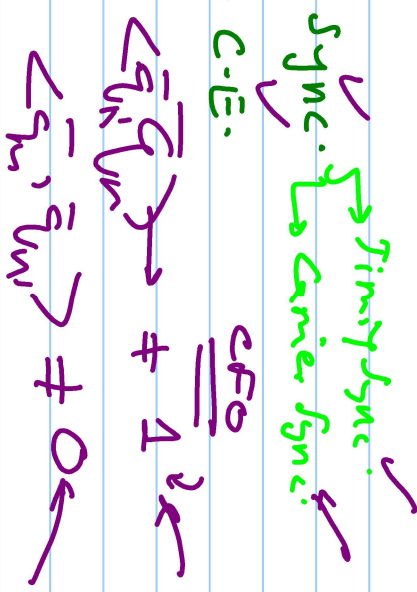 Sync. → Timing Sync.
→ Carrier Sync.
C.E.
CFO
<q̄ₙ, q̄ₙ> → ≠ 1
<q̄ₙ, q̄ₘ> ≠ 0